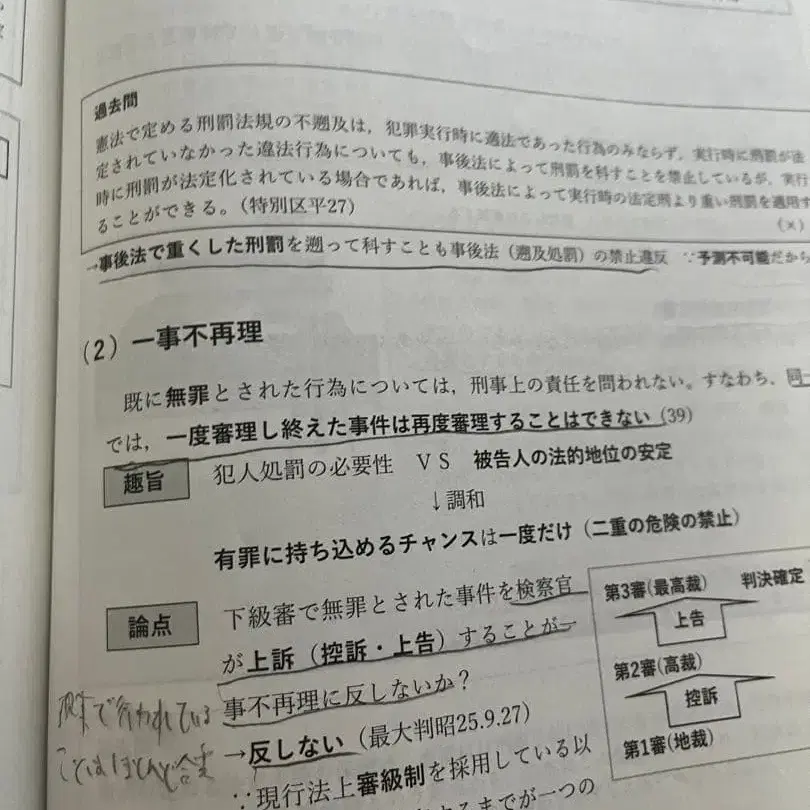 過去問
憲法で定める刑罰法規の不遡及は，犯罪実行時に適法であった行為のみならず，実行時に刑罰が法
定されていなかった違法行為についても，事後法によって刑罰を科すことを禁止しているが，実行
時に刑罰が法定化されている場合であれば，事後法によって実行時の法定刑より重い刑罰を適用す
ることができる。（特別区平27）
（×）
→事後法で重くした刑罰を遡って科すことも事後法（遡及処罰）の禁止違反 ∵予測不可能だから
（2）一事不再理
既に無罪とされた行為については，刑事上の責任を問われない。すなわち、同一
では，一度審理し終えた事件は再度審理することはできない（39）
趣旨
犯人処罰の必要性 ＶＳ 被告人の法的地位の安定
↓調和
有罪に持ち込めるチャンスは一度だけ（二重の危険の禁止）
論点
下級審で無罪とされた事件を検察官
が上訴（控訴・上告）することが一
事不再理に反しないか？
→反しない（最大判昭25.9.27）
∵現行法上審級制を採用している以
までが一つの
第3審(最高裁) 判決確定
上告
第2審(高裁)
控訴
第1審(地裁)
で行われている
ことはほとんど合憲